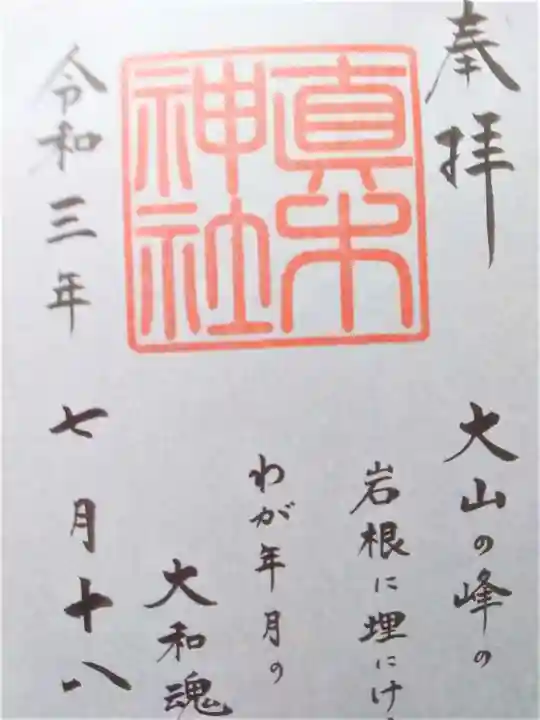 奉拝
真木神社
大山の峰の
岩根に埋にけ
わが年月の
大和魂
令和三年 七月十八